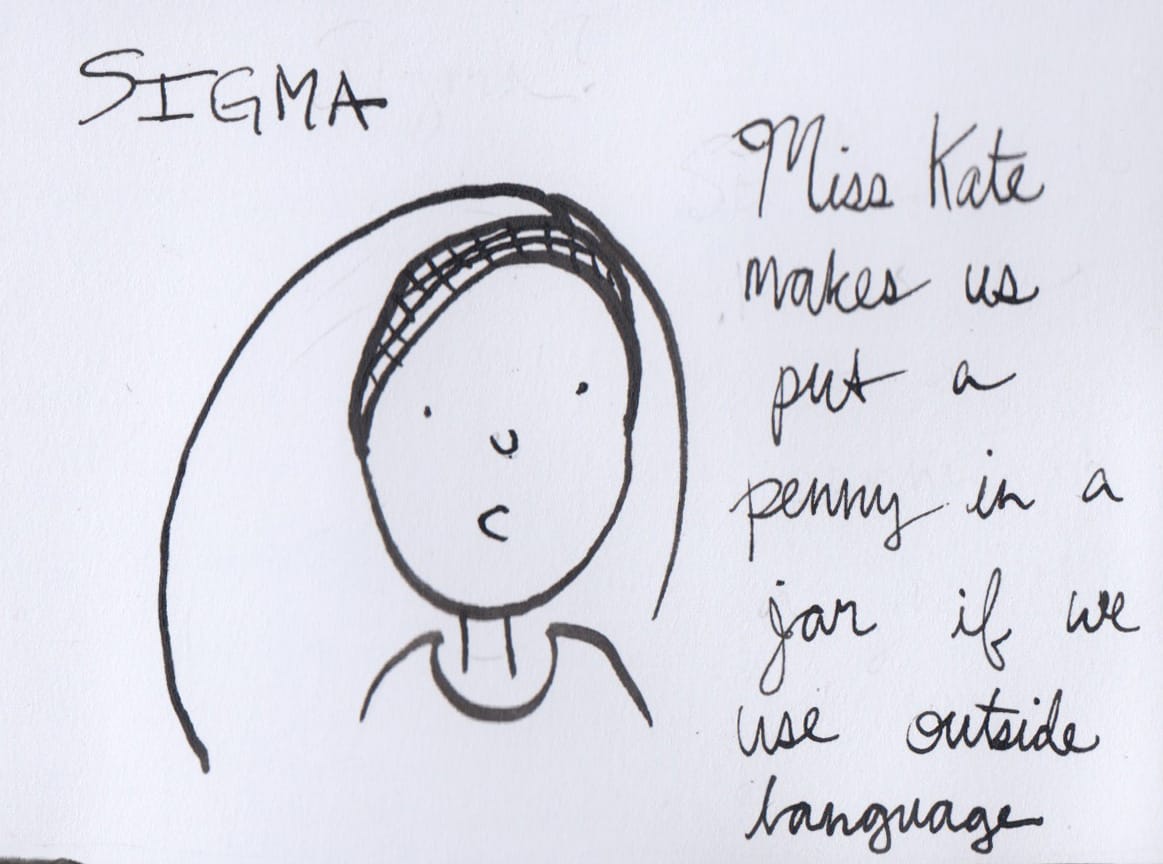 SIGMA
Miss Kate
makes us
put a
penny in a
jar if we
use outside
language